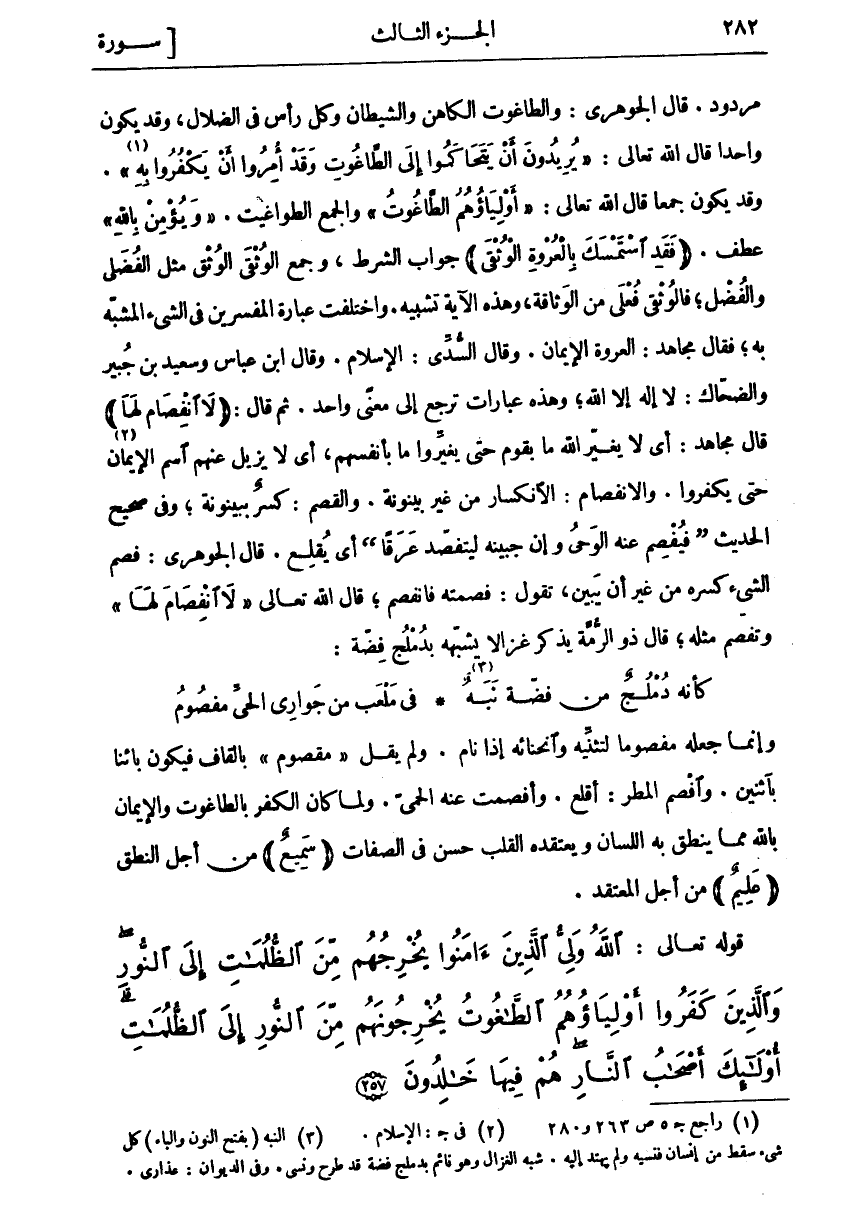 ٢٨٢ الجــزء الثــالث [ ســورة
مردود . قال الجوهرى : والطاغوت الكاهن والشيطان وكل رأس فى الضلال، وقد يكون
واحدا قال الله تعالى : « يُرِيدُونَ أَنْ يَتَحَاكَمُوا إِلَى الطَّاغُوتِ وَقَدْ أُمِرُوا أَنْ يَكْفُرُوا بِهِ (١) » .
وقد يكون جمعا قال الله تعالى : « أَوْلِيَاؤُهُمُ الطَّاغُوتُ » والجمع الطواغيت . « وَيُؤْمِنْ بِاللهِ »
عطف . ﴿ فَقَدِ ٱسْتَمْسَكَ بِالْعُرْوَةِ الْوُثْقَى ﴾ جواب الشرط ، وجمع الوُثْقَى الوُثْق مثل الفُضْلَى
والفُضْل؛ فالوُثْقى فُعْلَى من الوَثاقة، وهذه الآية تشبيه. واختلفت عبارة المفسرين فى الشىء المشبّه
به؛ فقال مجاهد : العروة الإيمان . وقال السُّدِّى : الإسلام . وقال ابن عباس وسعيد بن جُبير
والضحّاك : لا إله إلا الله؛ وهذه عبارات ترجع إلى معنًى واحد . ثم قال : ﴿ لَا ٱنْفِصَام لَهَا ﴾
قال مجاهد : أى لا يغــيّر الله ما بقوم حتى يغيِّروا ما بأنفسهم، أى لا يزيل عنهم ٱسم الإيمان (٢)
حتى يكفروا . والانفصام : الٱنكسار من غير بينونة . والقصم : كسرٌ ببينونة ؛ وفى صحيح
الحديث ” فيُفْصِم عنه الوَحىُ و إن جبينه ليتفصّد عَرَقًا “ أى يُقلِـع . قال الجوهرى : فصم
الشىء كسره من غير أن يَبين، تقول : فصمته فانفصم ؛ قال الله تعـالى « لَا ٱنْفِصَامَ لَهَـا »
وتفصّم مثله ؛ قال ذو الرُّمّة يذكر غزالا يشبّهه بدُمْلُج فِضّة :
كأنه دُمْلُـجٌ من فضّـة نَبَـهٌ (٣) * فى مَلْعَب من جَوارِى الحىِّ مفصُومُ
و إنمـا جعله مفصوما لتثنِّيه وٱنحنائه إذا نام . ولم يقـل « مقصوم » بالقاف فيكون بائنا
بٱثنين . وٱفْصم المطر : أقلع . وأفصمت عنه الحمىّ . ولمـا كان الكفر بالطاغوت والإيمان
بالله ممـا ينطق به اللسان ويعتقده القلب حسن فى الصفات ﴿ سَمِيعٌ ﴾ من أجل النطق
﴿ عَلِيمٌ ﴾ من أجل المعتقد .
قوله تعـالى : ٱللَّهُ وَلِىُّ ٱلَّذِينَ ءَامَنُوا يُخْرِجُهُم مِّنَ ٱلظُّلُمَـٰتِ إِلَى ٱلنُّورِۖ
وَٱلَّذِينَ كَفَرُوا أَوْلِيَاؤُهُمُ ٱلطَّـٰغُوتُ يُخْرِجُونَهُم مِّنَ ٱلنُّورِ إِلَى ٱلظُّلُمَـٰتِۗ
أُوْلَـٰٓئِكَ أَصْحَـٰبُ ٱلنَّـارِۖ هُمْ فِيهَا خَـٰلِدُونَ ﴿٢٥٧﴾
(١) راجع جـ ٥ ص ٢٦٣ و ٢٨٠ (٢) فى جـ : الإسلام . (٣) النبه (بفتح النون والباء) كل
شىء سقط من إنسان فنسيه ولم يهتد إليه . شبه الغزال وهو نائم بدملج فضة قد طرح ونسى . وفى الديوان : عذارى .